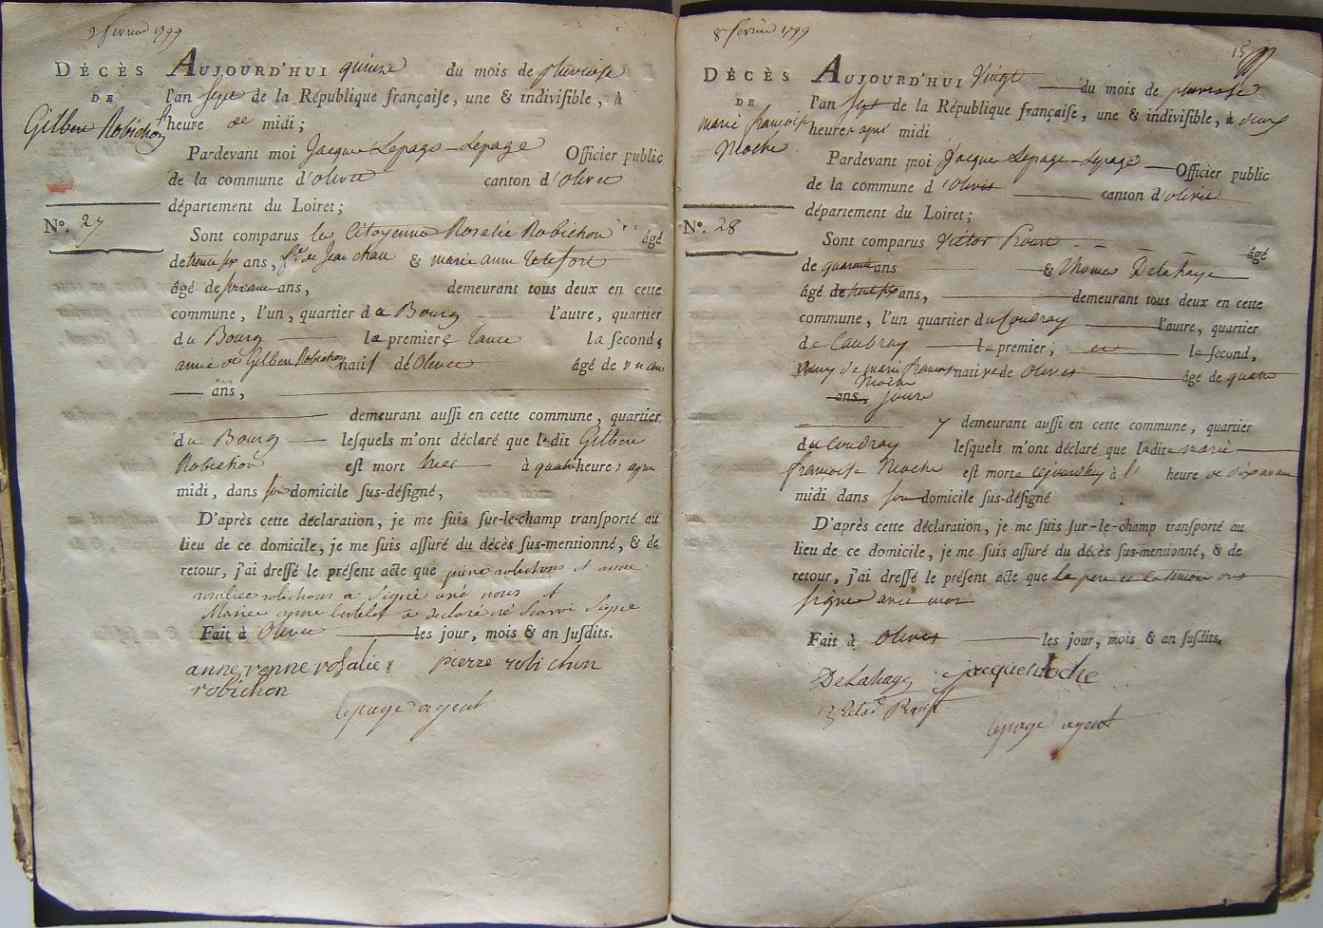 3 février 1799
DÉCÈS
DE
Gilbert Robichon
N°. 27
AUJOURD'HUI quinze du mois de pluviose
l'an sept de la République françaiſe, une & indiviſible, à
heure de midi;
Pardevant moi Jacque Lepage-Lepage Officier public
de la commune d'olivet canton d'olivet
département du Loiret;
Sont comparus les Citoyenne Rosalie Robichon âgé
de trente ſix ans, & marie anne
âgé de ans, demeurant tous deux en cette
commune, l'un, quartier du Bourg l'autre, quartier
du Bourg la premiere tante la second,
amie de Gilbert Robichon natif de Olivet âgé de un an
ans,
demeurant auſſi en cette commune, quartier
du Bourg leſquels m'ont déclaré que ledit Gilbert
Robichon eſt mort hier à quatre heures apres
midi, dans son domicile sus-déſigné,
D'après cette déclaration, je me ſuis ſur-le-champ tranſporté au
lieu de ce domicile, je me ſuis aſſuré du décès ſus-mentionné, & de
retour, j'ai dreſſé le préſent acte que pierre robichons et anne
rosalie robichons a signé avec nous et
Marie anne a declaré ne scavoir signé
Fait à Olivet les jour, mois & an ſuſdits.
anne renne rosalie pierre robichon
robichon
lepage agent
8 février 1799
15
DÉCÈS
DE
marie francoise
Moche
N°. 28
AUJOURD'HUI Vingt du mois de pluviose
l'an sept de la République françaiſe, une & indiviſible, à deux
heures apres midi
Pardevant moi Jacque Lepage-Lepage Officier public
de la commune d'Olivet canton d'olivet
département du Loiret;
Sont comparus Victor âgé
de quarante ans & Thomas Delahaye
âgé de ans, demeurant tous deux en cette
commune, l'un quartier du Coudray l'autre, quartier
de Caubray le premier, et le ſecond,
de marie francoise native de Olivet âgé de quatre
Moche
ans, jours
demeurant auſſi en cette commune, quartier
du Coudray leſquels m'ont déclaré que ladite marie
francoise Moche eſt morte à heure de dix avant
midi dans son domicile sus-déſigné
D'après cette déclaration, je me ſuis ſur-le-champ tranſporté au
lieu de ce domicile, je me ſuis aſſuré du décès ſus-mentionné, & de
retour, j'ai dreſſé le préſent acte que le pere et le temoin ont
signé avec moi
Fait à Olivet les jour, mois & an ſuſdits.
Delahaye jacque moche
lepage agent